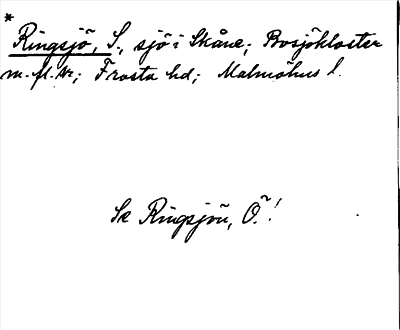 *
Ringsjö, S., sjö i Skåne; Bosjökloster
m. fl. sr; Frosta hd; Malmöhus l.
Se Ringsjön, Ö.!